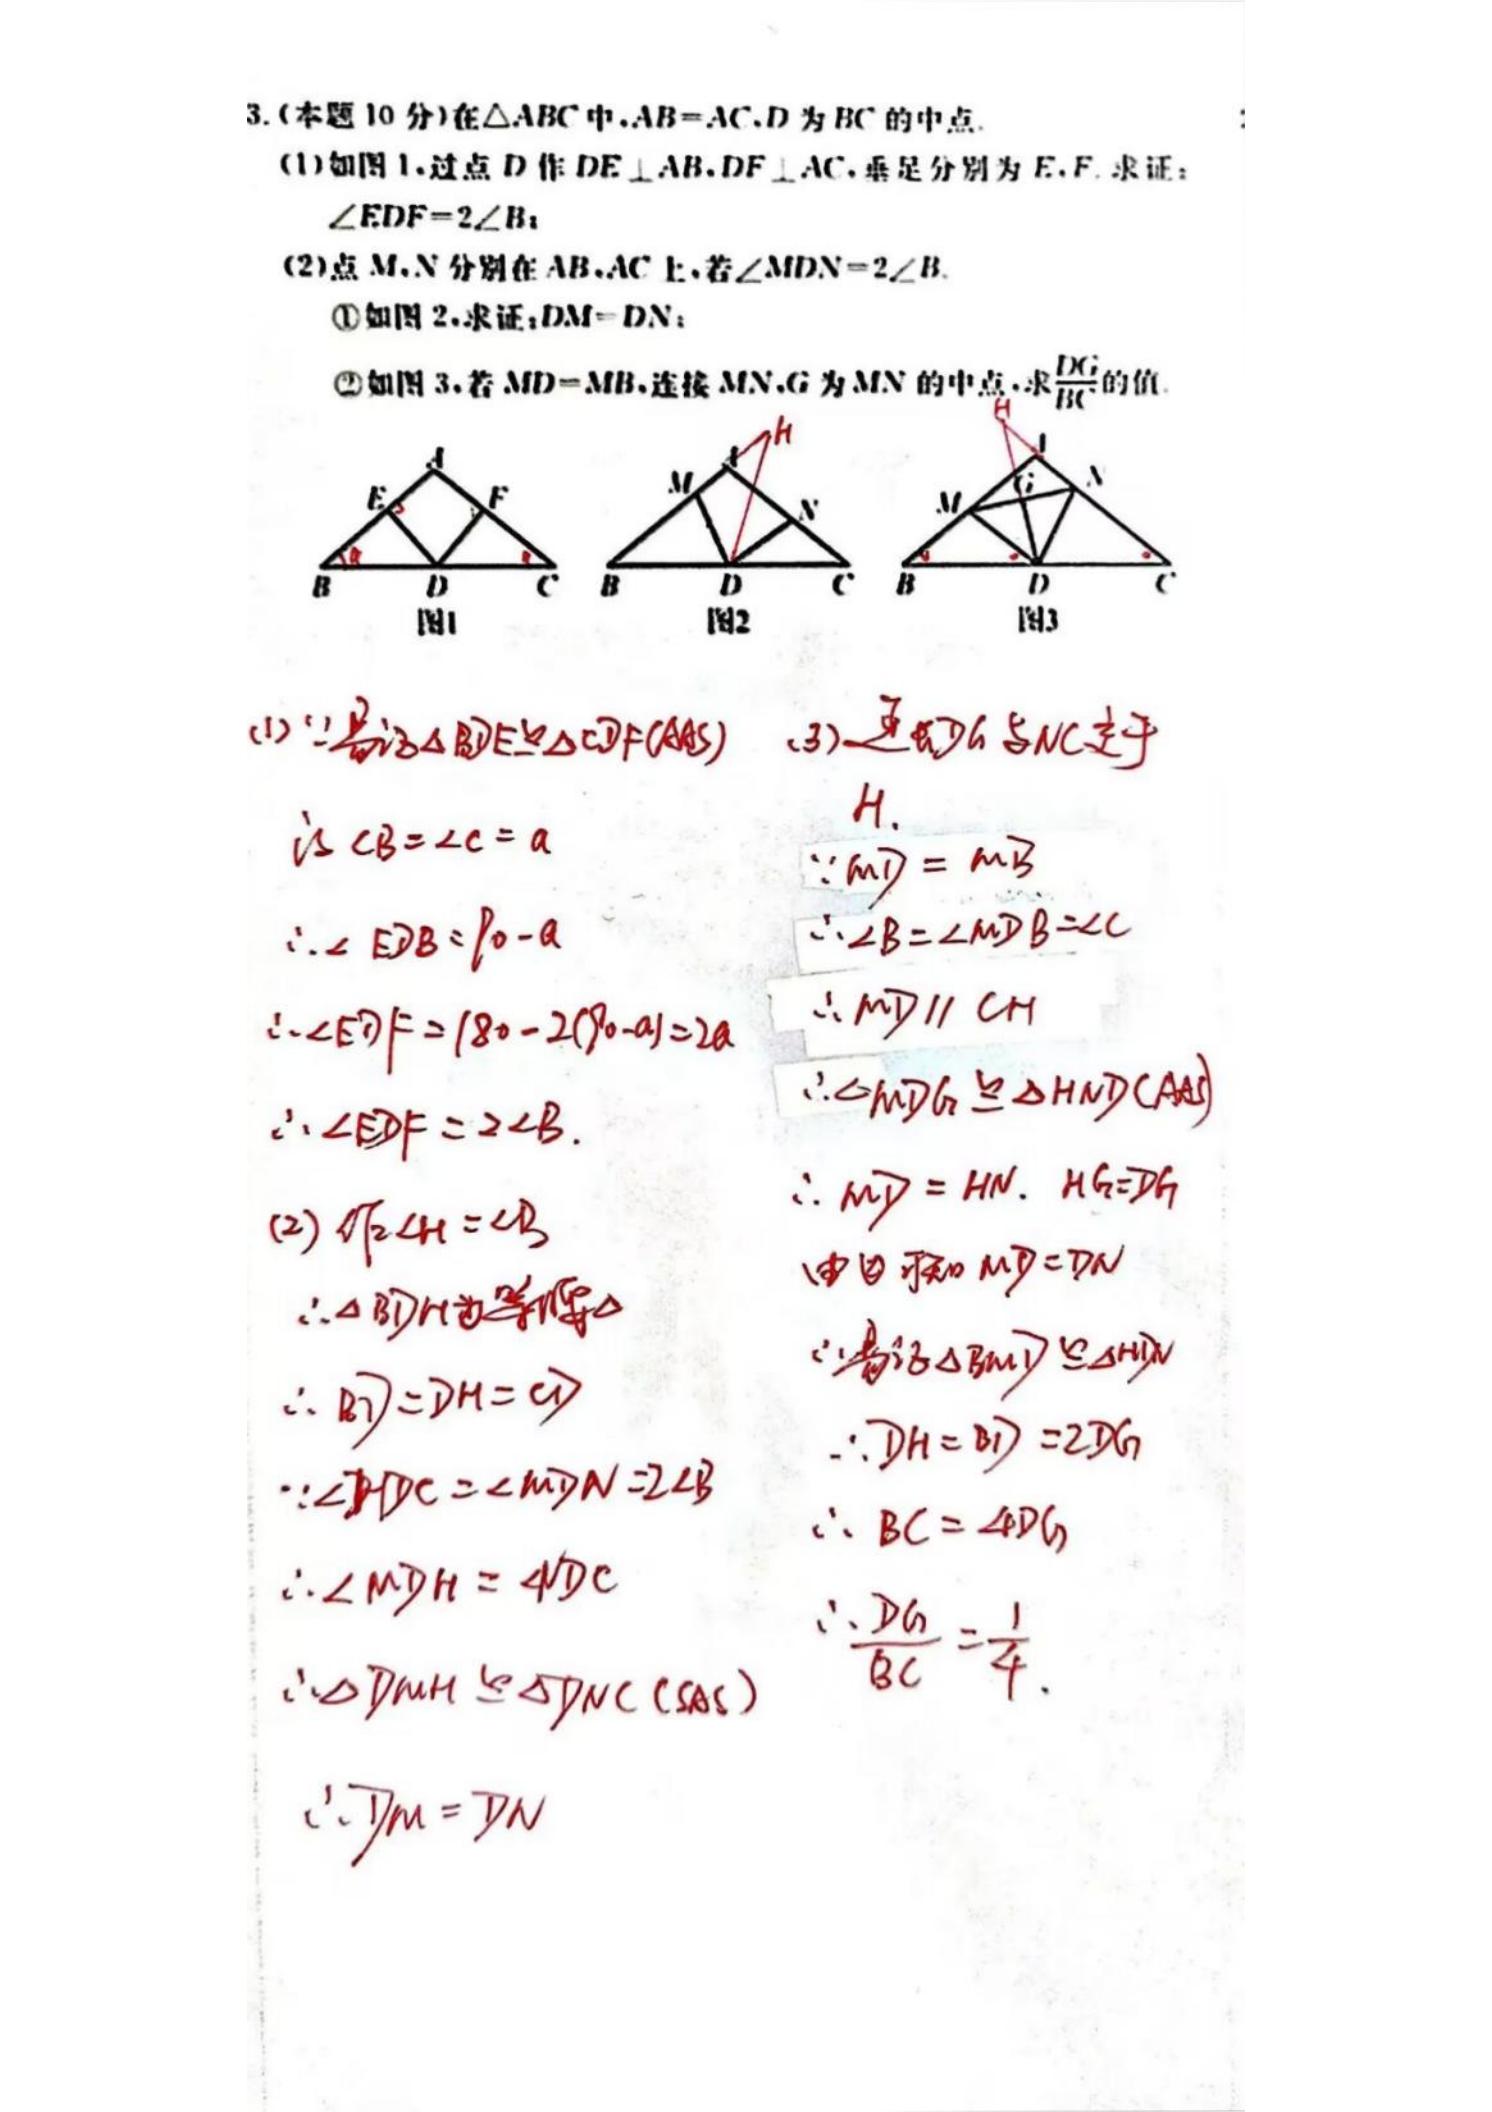 3.(本题 10 分)在△ABC 中,AB=AC,D 为 BC 的中点.
(1)如图 1,过点 D 作 DE⊥AB,DF⊥AC,垂足分别为 E,F. 求证:
∠EDF=2∠B;
(2)点 M,N 分别在 AB,AC 上,若∠MDN=2∠B.
①如图 2,求证:DM=DN;
②如图 3,若 MD=MB,连接 MN,G 为 MN 的中点,求DG/BC的值.
A E F B D C 图1
H A M N B D C 图2
H A G N M B D C 图3
(1) ∵易证△BDE≌△CDF(AAS)
设∠B=∠C=a
∴∠EDB=90-a
∴∠EDF=180-2(90-a)=2a
∴∠EDF=2∠B.
(2) 作∠H=∠B
∴△BDH为等腰△
∴BD=DH=CD
∵∠HDC=∠MDN=2∠B
∴∠MDH=∠NDC
∴△DMH≌△DNC(SAS)
∴DM=DN
(3) 延长DG与NC交于
H.
∵MD=MB
∴∠B=∠MDB=∠C
∴MD∥CH
∴△MDG≌△HND(AAS)
∴MD=HN. HG=DG
由①可知MD=DN
∴易证△BMD≌△HDN
∴DH=BD=2DG
∴BC=4DG
∴DG/BC=1/4.